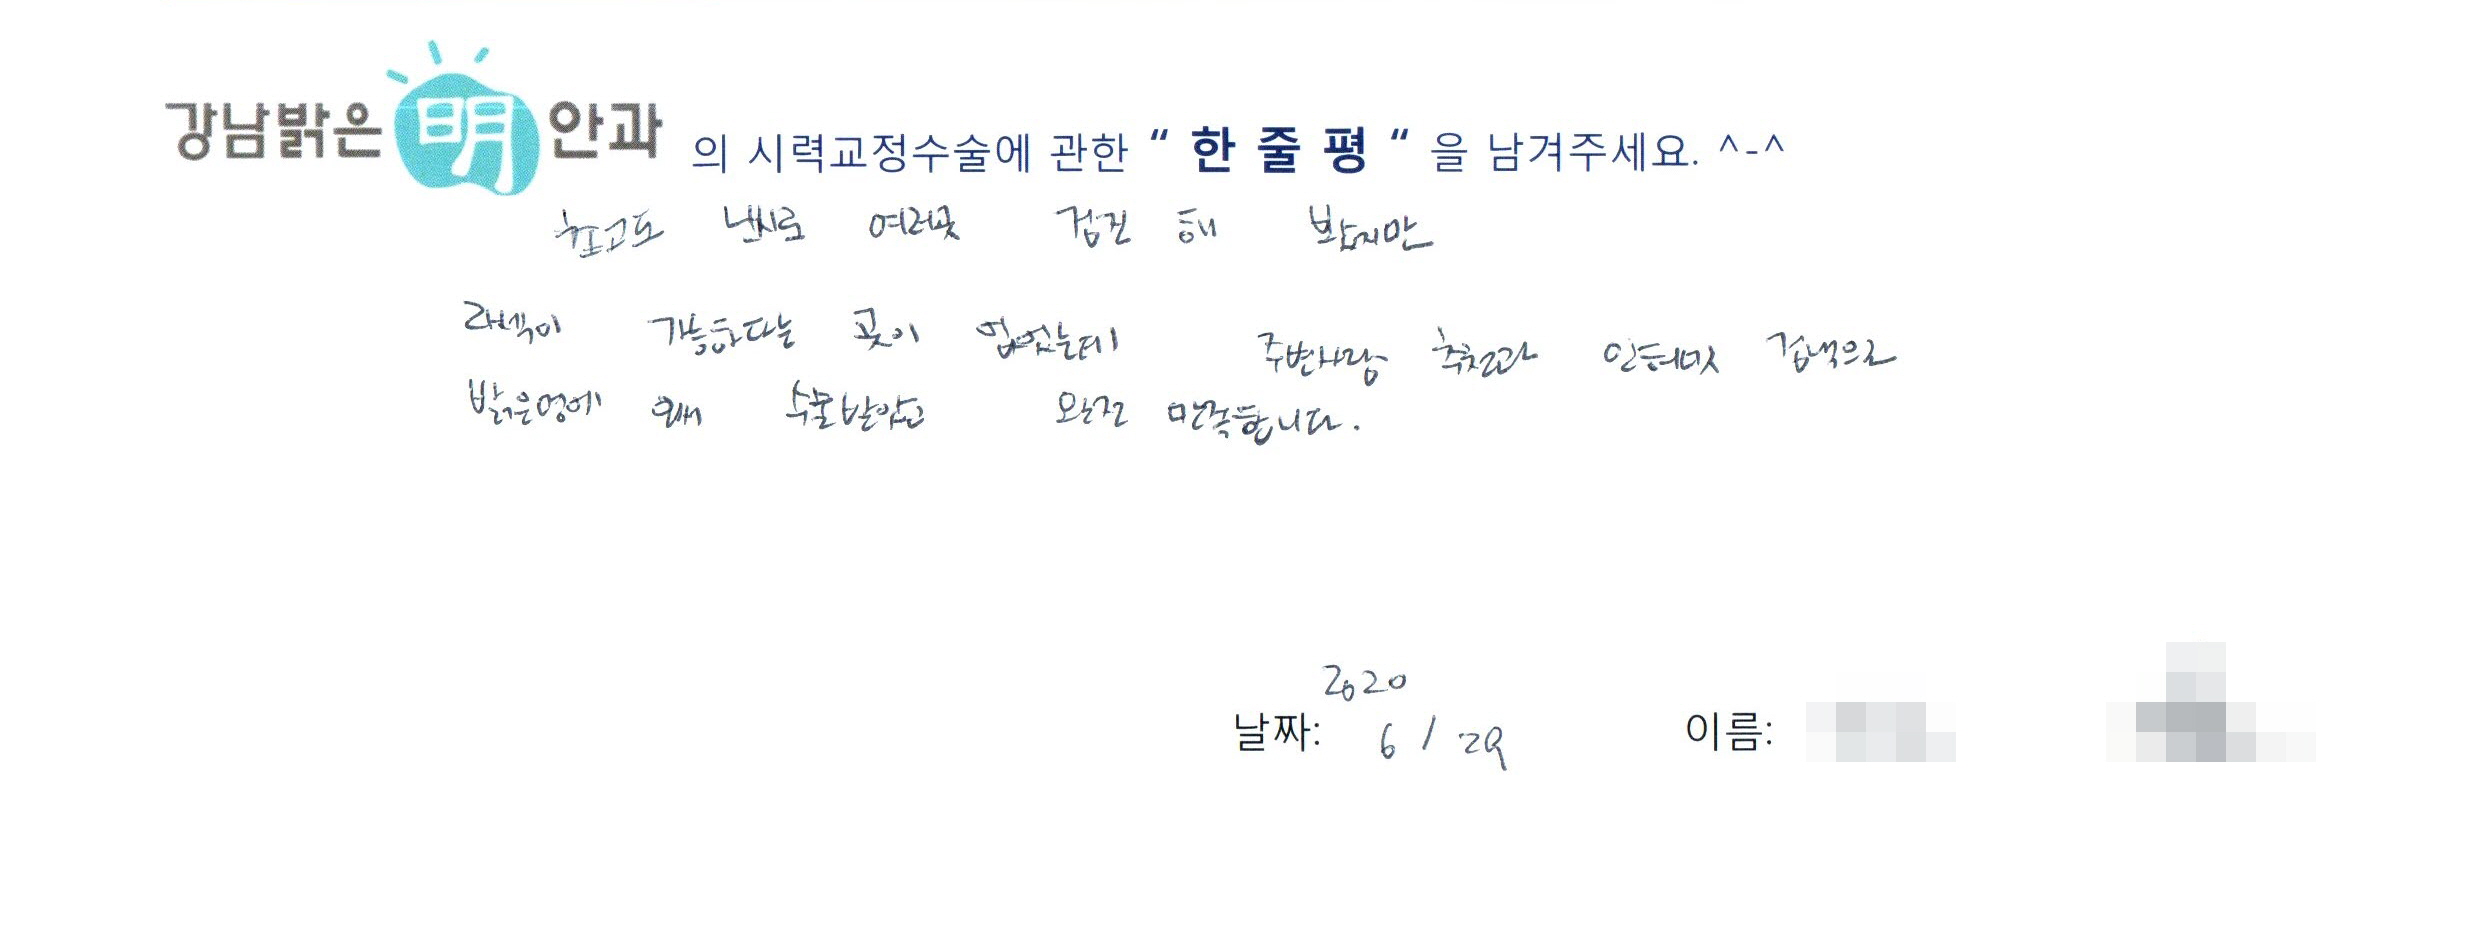 강남밝은明안과 의 시력교정수술에 관한 “ 한 줄 평 “ 을 남겨주세요. ^-^
초고도 난시로 여러곳 검진 해 보았지만
라섹이 가능하다는 곳이 없었는데 주변사람 추천과 인터넷 검색으로
밝은명에 와서 수술받았고 완전 만족합니다.
2020
날짜: 6 / 29 이름: